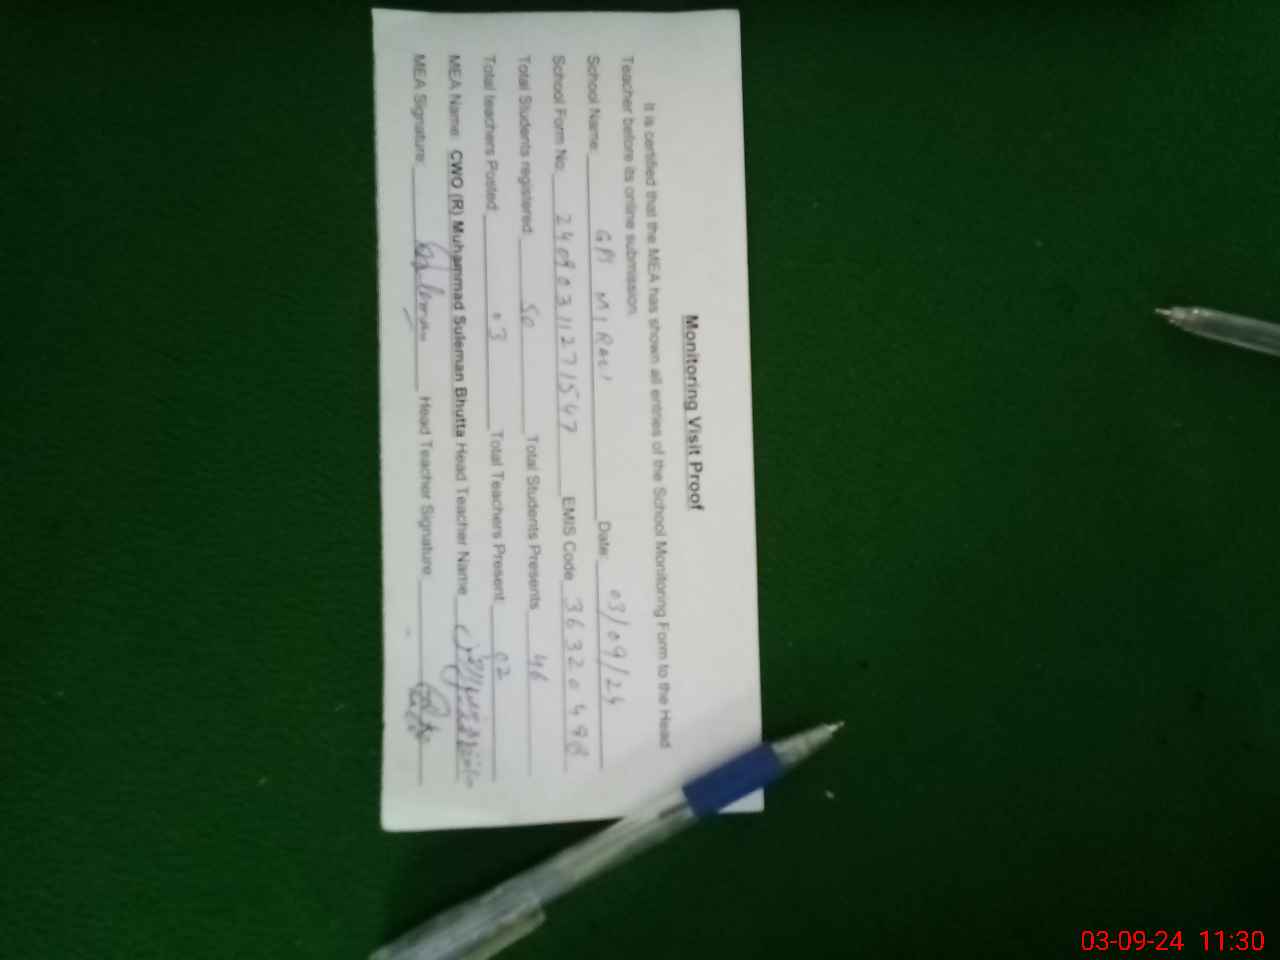 Monitoring Visit Proof
It is certified that the MEA has shown all entries of the School Monitoring Form to the Head
Teacher before its online submission.
School Name Date: 03/09/24
School Form No: 24090311271547 EMIS Code 36320498
Total Students registered: 50 Total Students Presents 46
Total teachers Posted: 03 Total Teachers Present 02
MEA Name: CWO (R) Muhammad Suleman Bhutta Head Teacher Name
MEA Signature: Head Teacher Signature
03-09-24 11:30